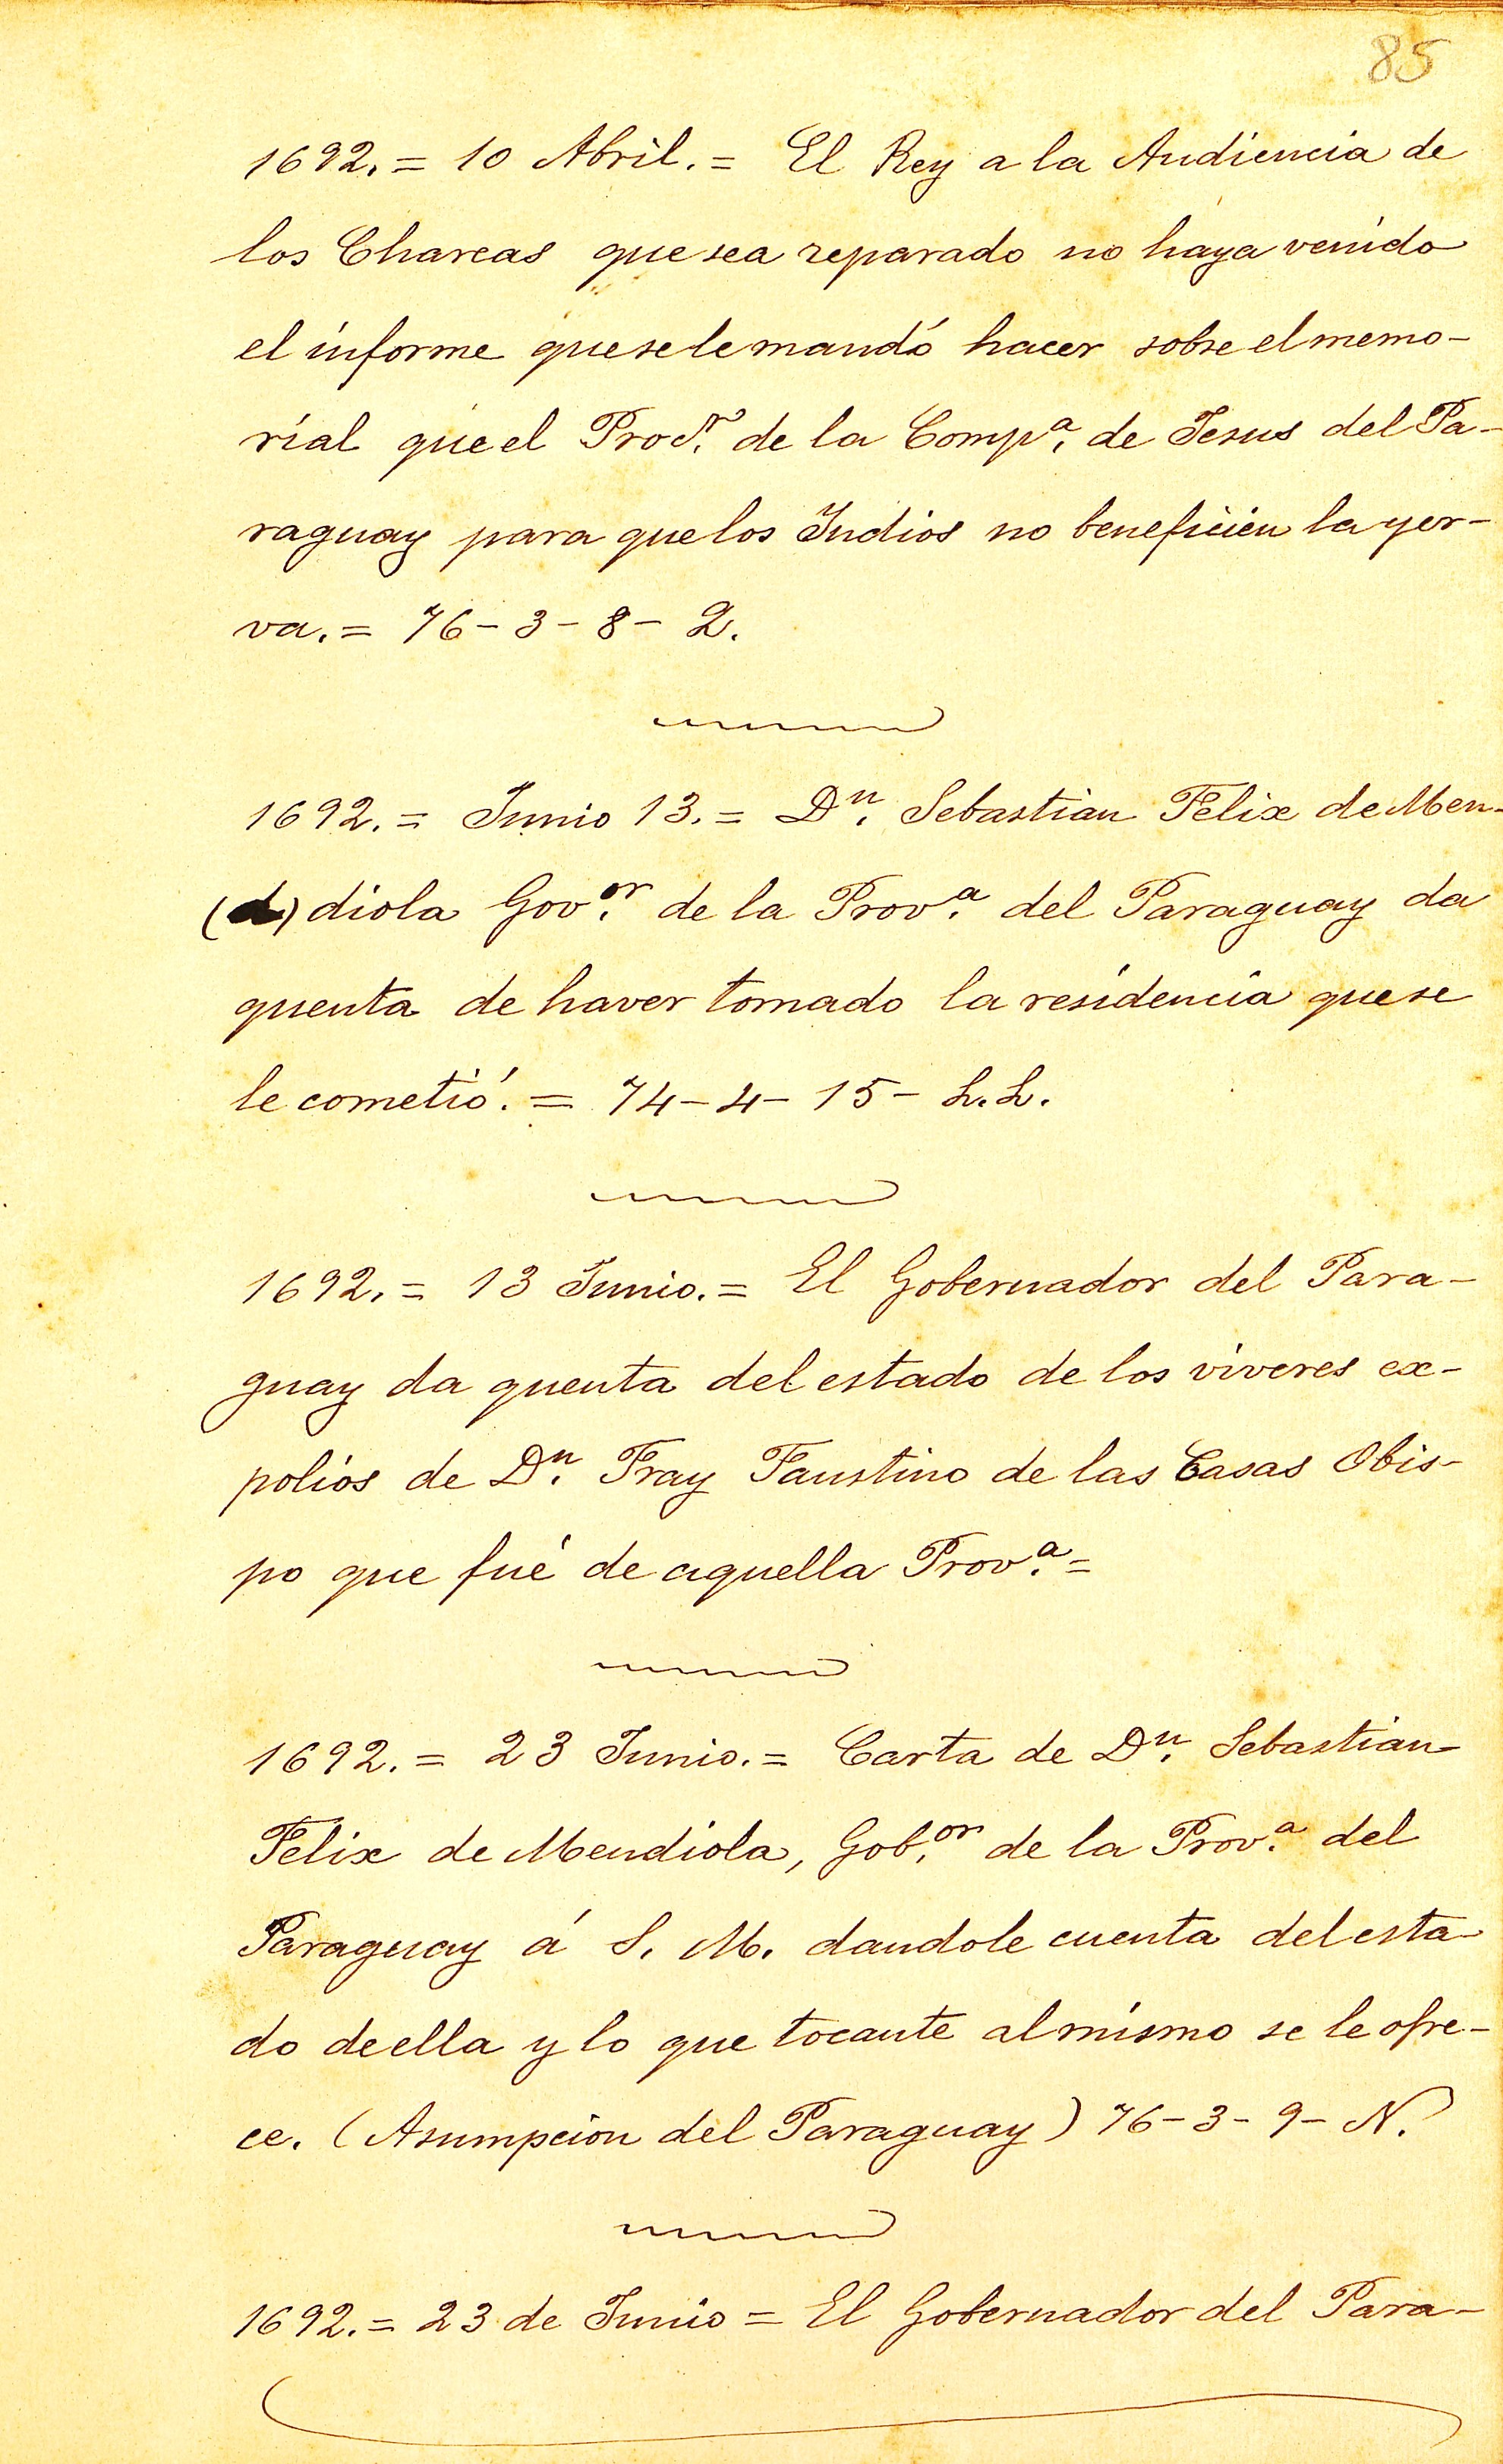 85
1692. = 10 Abril. = El Rey a la Audiencia de
los Charcas que sea reparado no haya venido
el informe que se le mandó hacer sobre el memo-
rial que el Prod.r de la Comp.a de Jesus del Pa-
raguay para que los Indios no beneficien la yer-
va. = 76 - 3 - 8 - 2.
1692. = Junio 13. = D.n Sebastian Felix de Men-
(d) diola Gov.or de la Prov.a del Paraguay da
quenta de haver tomado la residencia que se
le cometió. = 74 - 4 - 15 - L. L.
1692. = 13 Junio. = El Gobernador del Para-
guay da quenta del estado de los viveres ex-
polios de D.n Fray Faustino de las Casas Obis-
po que fué de aquella Prov.a =
1692. = 23 Junio. = Carta de D.n Sebastian
Felix de Mendiola, Gob.or de la Prov.a del
Paraguay á S. M. dandole cuenta del esta-
do de ella y lo que tocante al mismo se le ofre-
ce. (Asumpcion del Paraguay) 76 - 3 - 9 - N.
1692. = 23 de Junio = El Gobernador del Para-